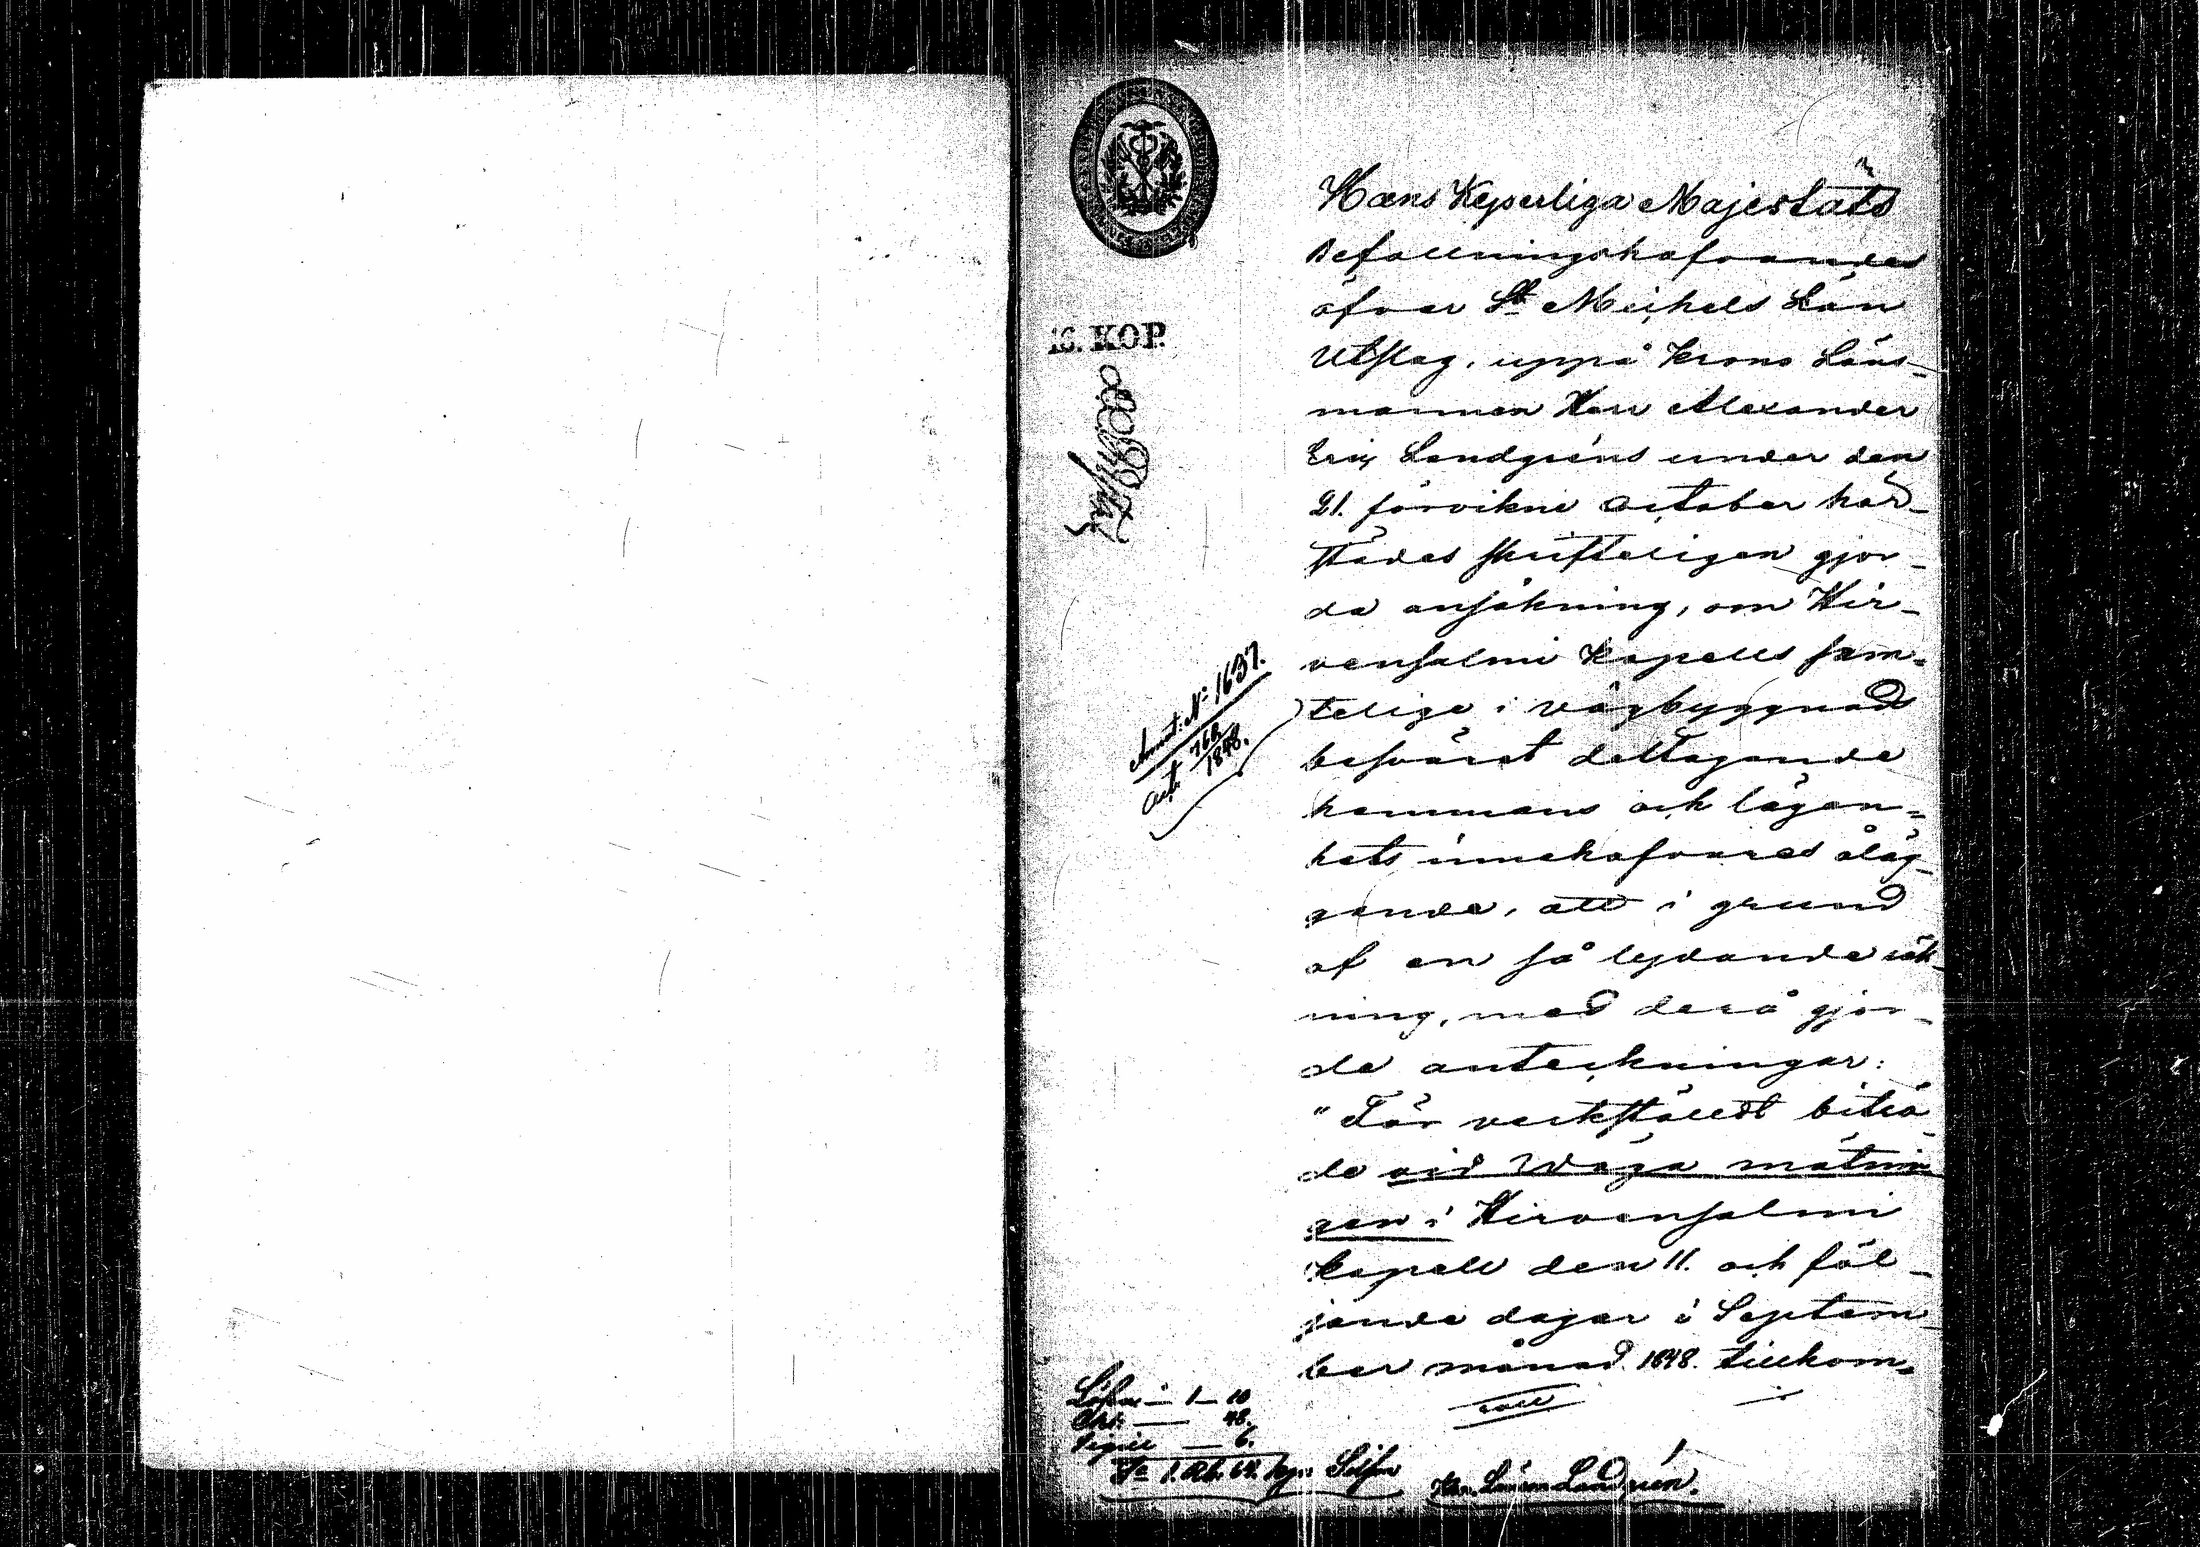 Hans Kejserliga Majestäts
Befallningshafvandes
öfver St Michels Län
Utslag, uppå Krono Läns-
mannen Herr Alexander
Eric Landgréns under den
21. förvikne October här-
städes skrifteligen gjor-
da ansökning, om Hir-
vensalmi Kapells sam-
telige i vägbyggnads
besväret deltagande
hemmans och lägen-
hets innehafvares åläg-
gande, att i grund
af en så lydande räk-
ning, med derå gjor-
de anteckningar:
"För verkstäldt biträ-
de vid Wäga mätnin-
gen i Hirvensalmi
Kapell den 11. och föl-
jande dagar i Septem-
ber månad 1848. tillkom-
16. KOP.
Anmt: No 1637.
Act 762
1848.
Lösen — 1 — 10
Chs: — 48.
Sigill — 6.
Sa 1. Rb. 64. kop: Silfver
Kr. Länsm Landgrén.